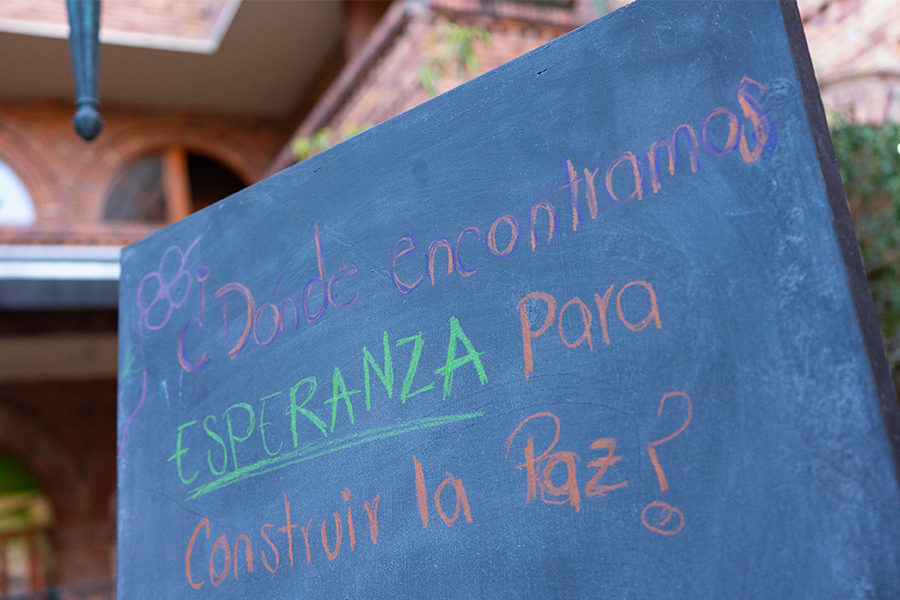 ¿Dónde encontramos
ESPERANZA para
Construir la Paz?